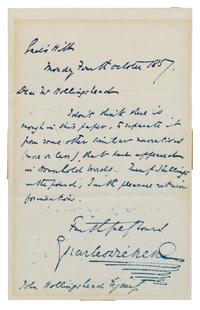 Gad's Hill
Monday Fourth October 1857.
Dear Mr Hollingshead
I don't think there is
enough in this paper, to separate it
from some other similar narratives
(more or less), that have appeared
in Household Words.
with pound, I with pleasure
Faithfully Yours
Charles Dickens
John Hollingshead Esquire